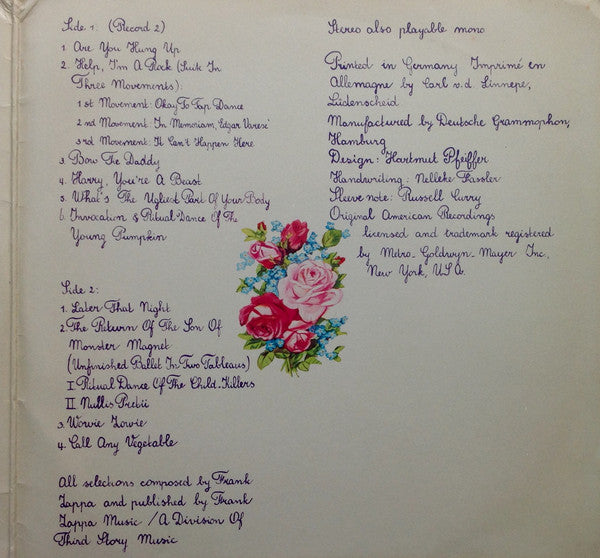 Side 1: (Record 2)
1 Are You Hung Up
2. Help, I'm A Rock (Suite In
Three Movements):
1st Movement: Okay To Tap Dance
2nd Movement: In Memoriam, Edgar Varese'
3rd Movement: It Can't Happen Here
3 Bow The Daddy
4. Harry, You're A Beast
5. What's The Ugliest Part Of Your Body
6. Invocation & Ritual Dance Of The
Young Pumpkin
Side 2:
1. Later That Night
2. The Return Of The Son Of
Monster Magnet
(Unfinished Ballet In Two Tableaus)
I. Ritual Dance Of The Child-Killers
II. Nullis Pretii
3. Wowie Zowie
4. Call Any Vegetable
All selections composed by Frank
Zappa and published by Frank
Zappa Music / A Division Of
Third Story Music
Stereo also playable mono
Printed in Germany Imprimé en
Allemagne by Carl v.d. Linnepe,
Lüdenscheid
Manufactured by Deutsche Grammophon,
Hamburg
Design: Hartmut Pfeiffer
Handwriting: Nelleke Fassler
Sleeve note: Russell Curry
Original American Recordings
licensed and trademark registered
by Metro-Goldwyn-Mayer Inc,
New York, USA.